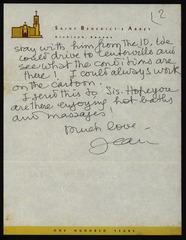 2
SAINT BENEDICT'S ABBEY
Atchison, Kansas
stay with him from the 10, we
could drive to Centerville and
see what the conditions are
there! I could always work
on the cartoon.
I send this to Sis. Hope you
are there enjoying hot baths
and massages
Much love –
Jean
ONE HUNDRED YEARS